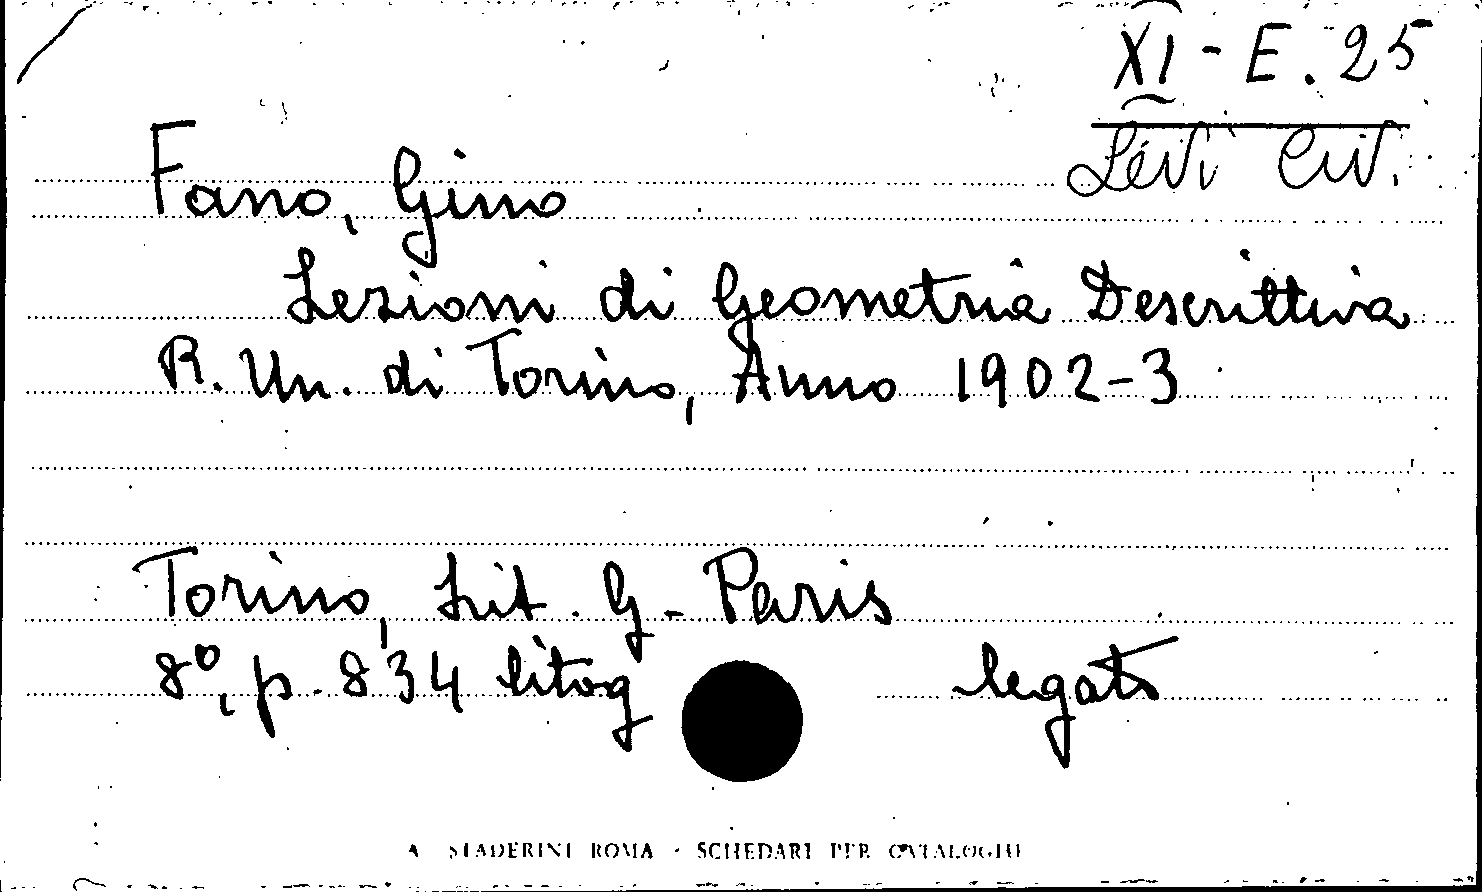 XI - E. 25
Levi Civ.
Fano, Gino
Lezioni di Geometria Descrittiva
R. Un. di Torino, Anno 1902-3
Torino, Lit. G. Paris
8º, p. 834 litog legato
A STADERINI ROMA - SCHEDARI PER CATALOGHI